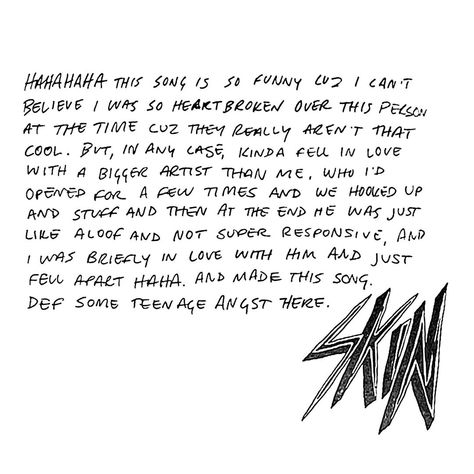 HAHAHAHA THIS SONG IS SO FUNNY CUZ I CAN'T
BELIEVE I WAS SO HEARTBROKEN OVER THIS PERSON
AT THE TIME CUZ THEY REALLY AREN'T THAT
COOL. BUT, IN ANY CASE, KINDA FELL IN LOVE
WITH A BIGGER ARTIST THAN ME, WHO I'D
OPENED FOR A FEW TIMES AND WE HOOKED UP
AND STUFF AND THEN AT THE END HE WAS JUST
LIKE ALOOF AND NOT SUPER RESPONSIVE, AND
I WAS BRIEFLY IN LOVE WITH HIM AND JUST
FELL APART HAHA. AND MADE THIS SONG.
DEF SOME TEENAGE ANGST HERE.
SKIN